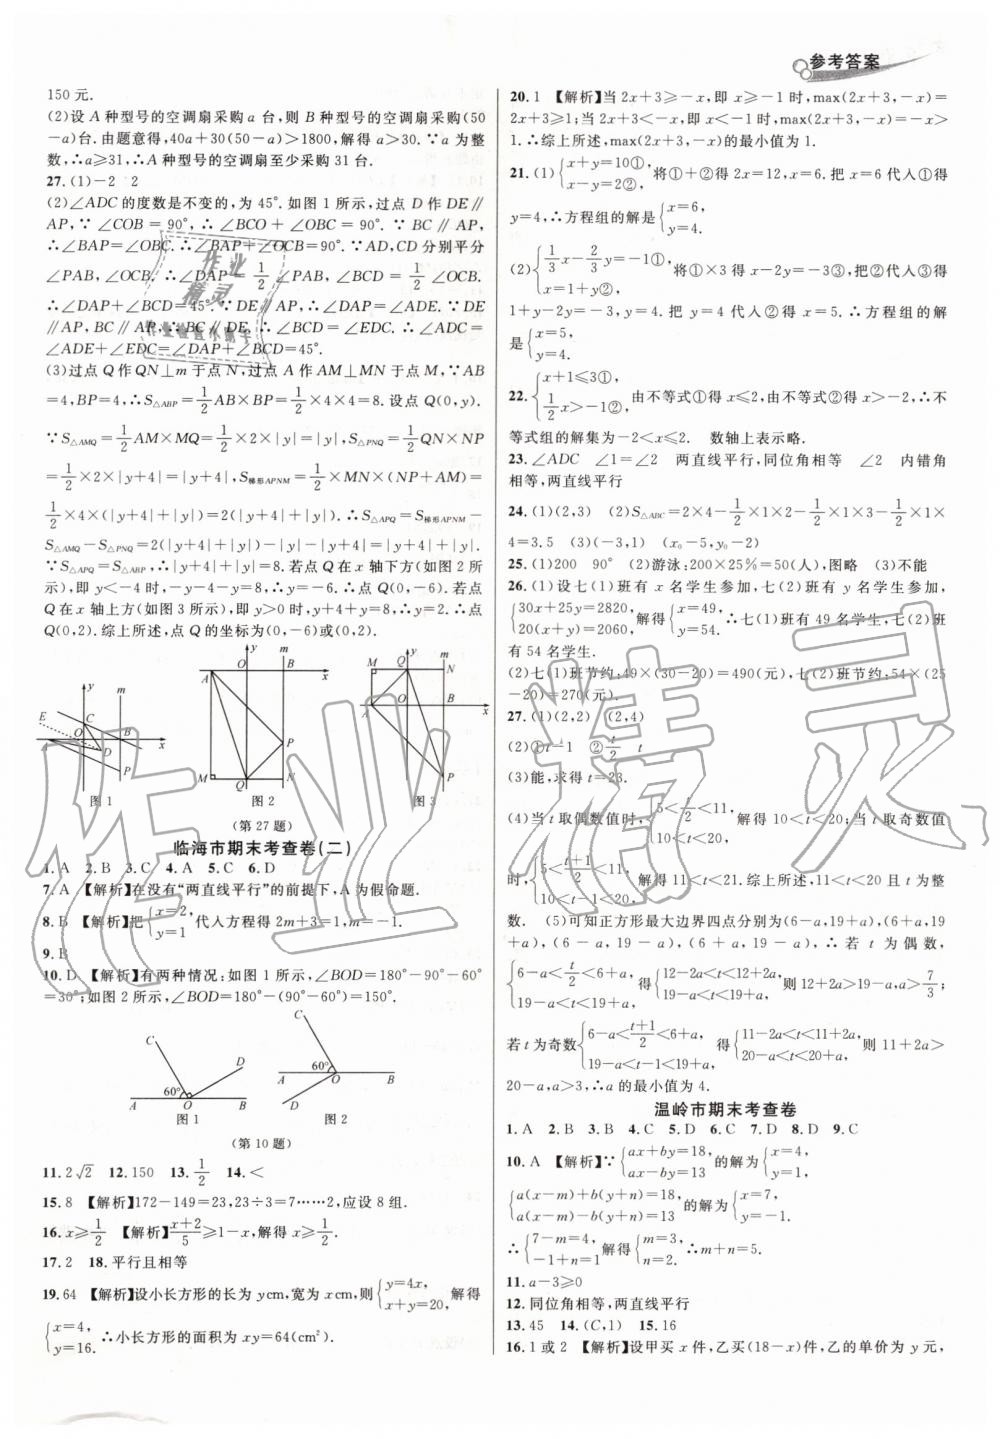 参考答案
150元.
(2)设A种型号的空调扇采购a台,则B种型号的空调扇采购(50
-a)台.由题意得,40a+30(50-a)>1800,解得a>30.∵a为整
数,∴a≥31,∴A种型号的空调扇至少采购31台.
27.(1)-2 2
(2)∠ADC的度数是不变的,为45°.如图1所示,过点D作DE∥
AP,∵∠COB=90°,∴∠BCO+∠OBC=90°.∵BC∥AP,
∴∠BAP=∠OBC.∴∠BAP+∠OCB=90°.∵AD,CD分别平分
∠PAB,∠OCB.∴∠DAP=1/2∠PAB,∠BCD=1/2∠OCB.
∴∠DAP+∠BCD=45°.∵DE∥AP,∴∠DAP=∠ADE.∵DE
∥AP,BC∥AP,∴BC∥DE.∴∠BCD=∠EDC.∴∠ADC=
∠ADE+∠EDC=∠DAP+∠BCD=45°.
(3)过点Q作QN⊥m于点N,过点A作AM⊥MN于点M,∵AB
=4,BP=4,∴S△ABP=1/2AB×BP=1/2×4×4=8.设点Q(0,y).
∵S△AMQ=1/2AM×MQ=1/2×2×|y|=|y|,S△PNQ=1/2QN×NP
=1/2×2×|y+4|=|y+4|,S梯形APNM=1/2×MN×(NP+AM)=
1/2×4×(|y+4|+|y|)=2(|y+4|+|y|).∴S△APQ=S梯形APNM-
S△AMQ-S△PNQ=2(|y+4|+|y|)-|y|-|y+4|=|y+4|+|y|.
∵S△APQ=S△ABP,∴|y+4|+|y|=8.若点Q在x轴下方(如图2所
示),即y<-4时,-y-4-y=8,∴y=-6,∴点Q(0,-6).若点
Q在x轴上方(如图3所示),即y>0时,y+4+y=8,∴y=2.∴点
Q(0,2).综上所述,点Q的坐标为(0,-6)或(0,2).
y m E C O B x A D P
图1
O B x A P M Q N
图2
y m M Q N A O B x P
图3
(第27题)
临海市期末考查卷(二)
1.A 2.B 3.C 4.A 5.C 6.D
7.A 【解析】在没有“两直线平行”的前提下,A为假命题.
8.B 【解析】把{x=2, y=1代入方程得2m+3=1,m=-1.
9.B
10.D 【解析】有两种情况:如图1所示,∠BOD=180°-90°-60°
=30°;如图2所示,∠BOD=180°-(90°-60°)=150°.
C D 60° A O B
图1
C 60° A O B D
图2
(第10题)
11.2√2 12.150 13.1/2 14.<
15.8 【解析】172-149=23,23÷3=7……2,应设8组.
16.x≥1/2 【解析】(x+2)/5≥1-x,解得x≥1/2.
17.2 18.平行且相等
19.64 【解析】设小长方形的长为ycm,宽为xcm,则{y=4x, x+y=20,解得
{x=4, y=16.∴小长方形的面积为xy=64(cm²).
20.1 【解析】当2x+3≥-x,即x≥-1时,max(2x+3,-x)=
2x+3≥1;当2x+3<-x,即x<-1时,max(2x+3,-x)=-x>
1.∴综上所述,max(2x+3,-x)的最小值为1.
21.(1){x+y=10①, x-y=2②,将①+②得2x=12,x=6.把x=6代入①得
y=4,∴方程组的解是{x=6, y=4.
(2){1/3x-2/3y=-1①, x=1+y②,将①×3得x-2y=-3③,把②代入③得
1+y-2y=-3,y=4.把y=4代入②得x=5.∴方程组的解
是{x=5, y=4.
22.{x+1≤3①, 1/2x>-1②,由不等式①得x≤2,由不等式②得x>-2,∴不
等式组的解集为-2<x≤2. 数轴上表示略.
23.∠ADC ∠1=∠2 两直线平行,同位角相等 ∠2 内错角
相等,两直线平行
24.(1)(2,3) (2)S△ABC=2×4-1/2×1×2-1/2×1×3-1/2×1×
4=3.5 (3)(-3,1) (x₀-5,y₀-2)
25.(1)200 90° (2)游泳:200×25%=50(人),图略 (3)不能
26.(1)设七(1)班有x名学生参加,七(2)班有y名学生参加,
{30x+25y=2820, 20(x+y)=2060,解得{x=49, y=54.∴七(1)班有49名学生,七(2)班
有54名学生.
(2)七(1)班节约:49×(30-20)=490(元),七(2)班节约:54×(25
-20)=270(元).
27.(1)(2,2) (2,4)
(2)①t-1 ②t/2 t
(3)能,求得t=23.
(4)当t取偶数值时,{5<t/2<11, 10<t<20,解得10<t<20;当t取奇数值
时,{5<(t+1)/2<11, 10<t-1<20,解得11<t<21.综上所述,11≤t≤20且t为整
数. (5)可知正方形最大边界四点分别为(6-a,19+a),(6+a,19
+a),(6-a,19-a),(6+a,19-a),∴若t为偶数,
{6-a<t/2<6+a, 19-a<t<19+a,得{12-2a<t<12+2a, 19-a<t<19+a,则12+2a>19-a,a>7/3;
若t为奇数{6-a<(t+1)/2<6+a, 19-a<t-1<19+a,得{11-2a<t<11+2a, 20-a<t<20+a,则11+2a>
20-a,a>3,∴a的最小值为4.
温岭市期末考查卷
1.A 2.B 3.B 4.C 5.D 6.C 7.D 8.D 9.C
10.A 【解析】∵{ax+by=18, ax-by=13的解为{x=4, y=1,
{a(x-m)+b(y+n)=18, a(x-m)-b(y+n)=13的解为{x=7, y=-1.
∴{7-m=4, -1+n=1,解得{m=3, n=2,∴m+n=5.
11.a-3≥0
12.同位角相等,两直线平行
13.45 14.(C,1) 15.16
16.1或2 【解析】设甲买x件,乙买(18-x)件,乙的单价为y元,
作业精灵
作业检查小帮手
作业精灵